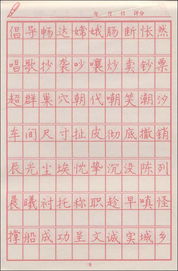 年 月 日 评分
倡导畅达嫦娥肠断怅然
唱歌抄袭吵嚷炒卖钞票
超群巢穴朝代嘲笑潮汐
车间尺寸扯皮彻底撤销
辰光尘埃忱挚沉没陈列
晨曦衬托称职趁早嗔怪
撑船成功呈文诚实城乡